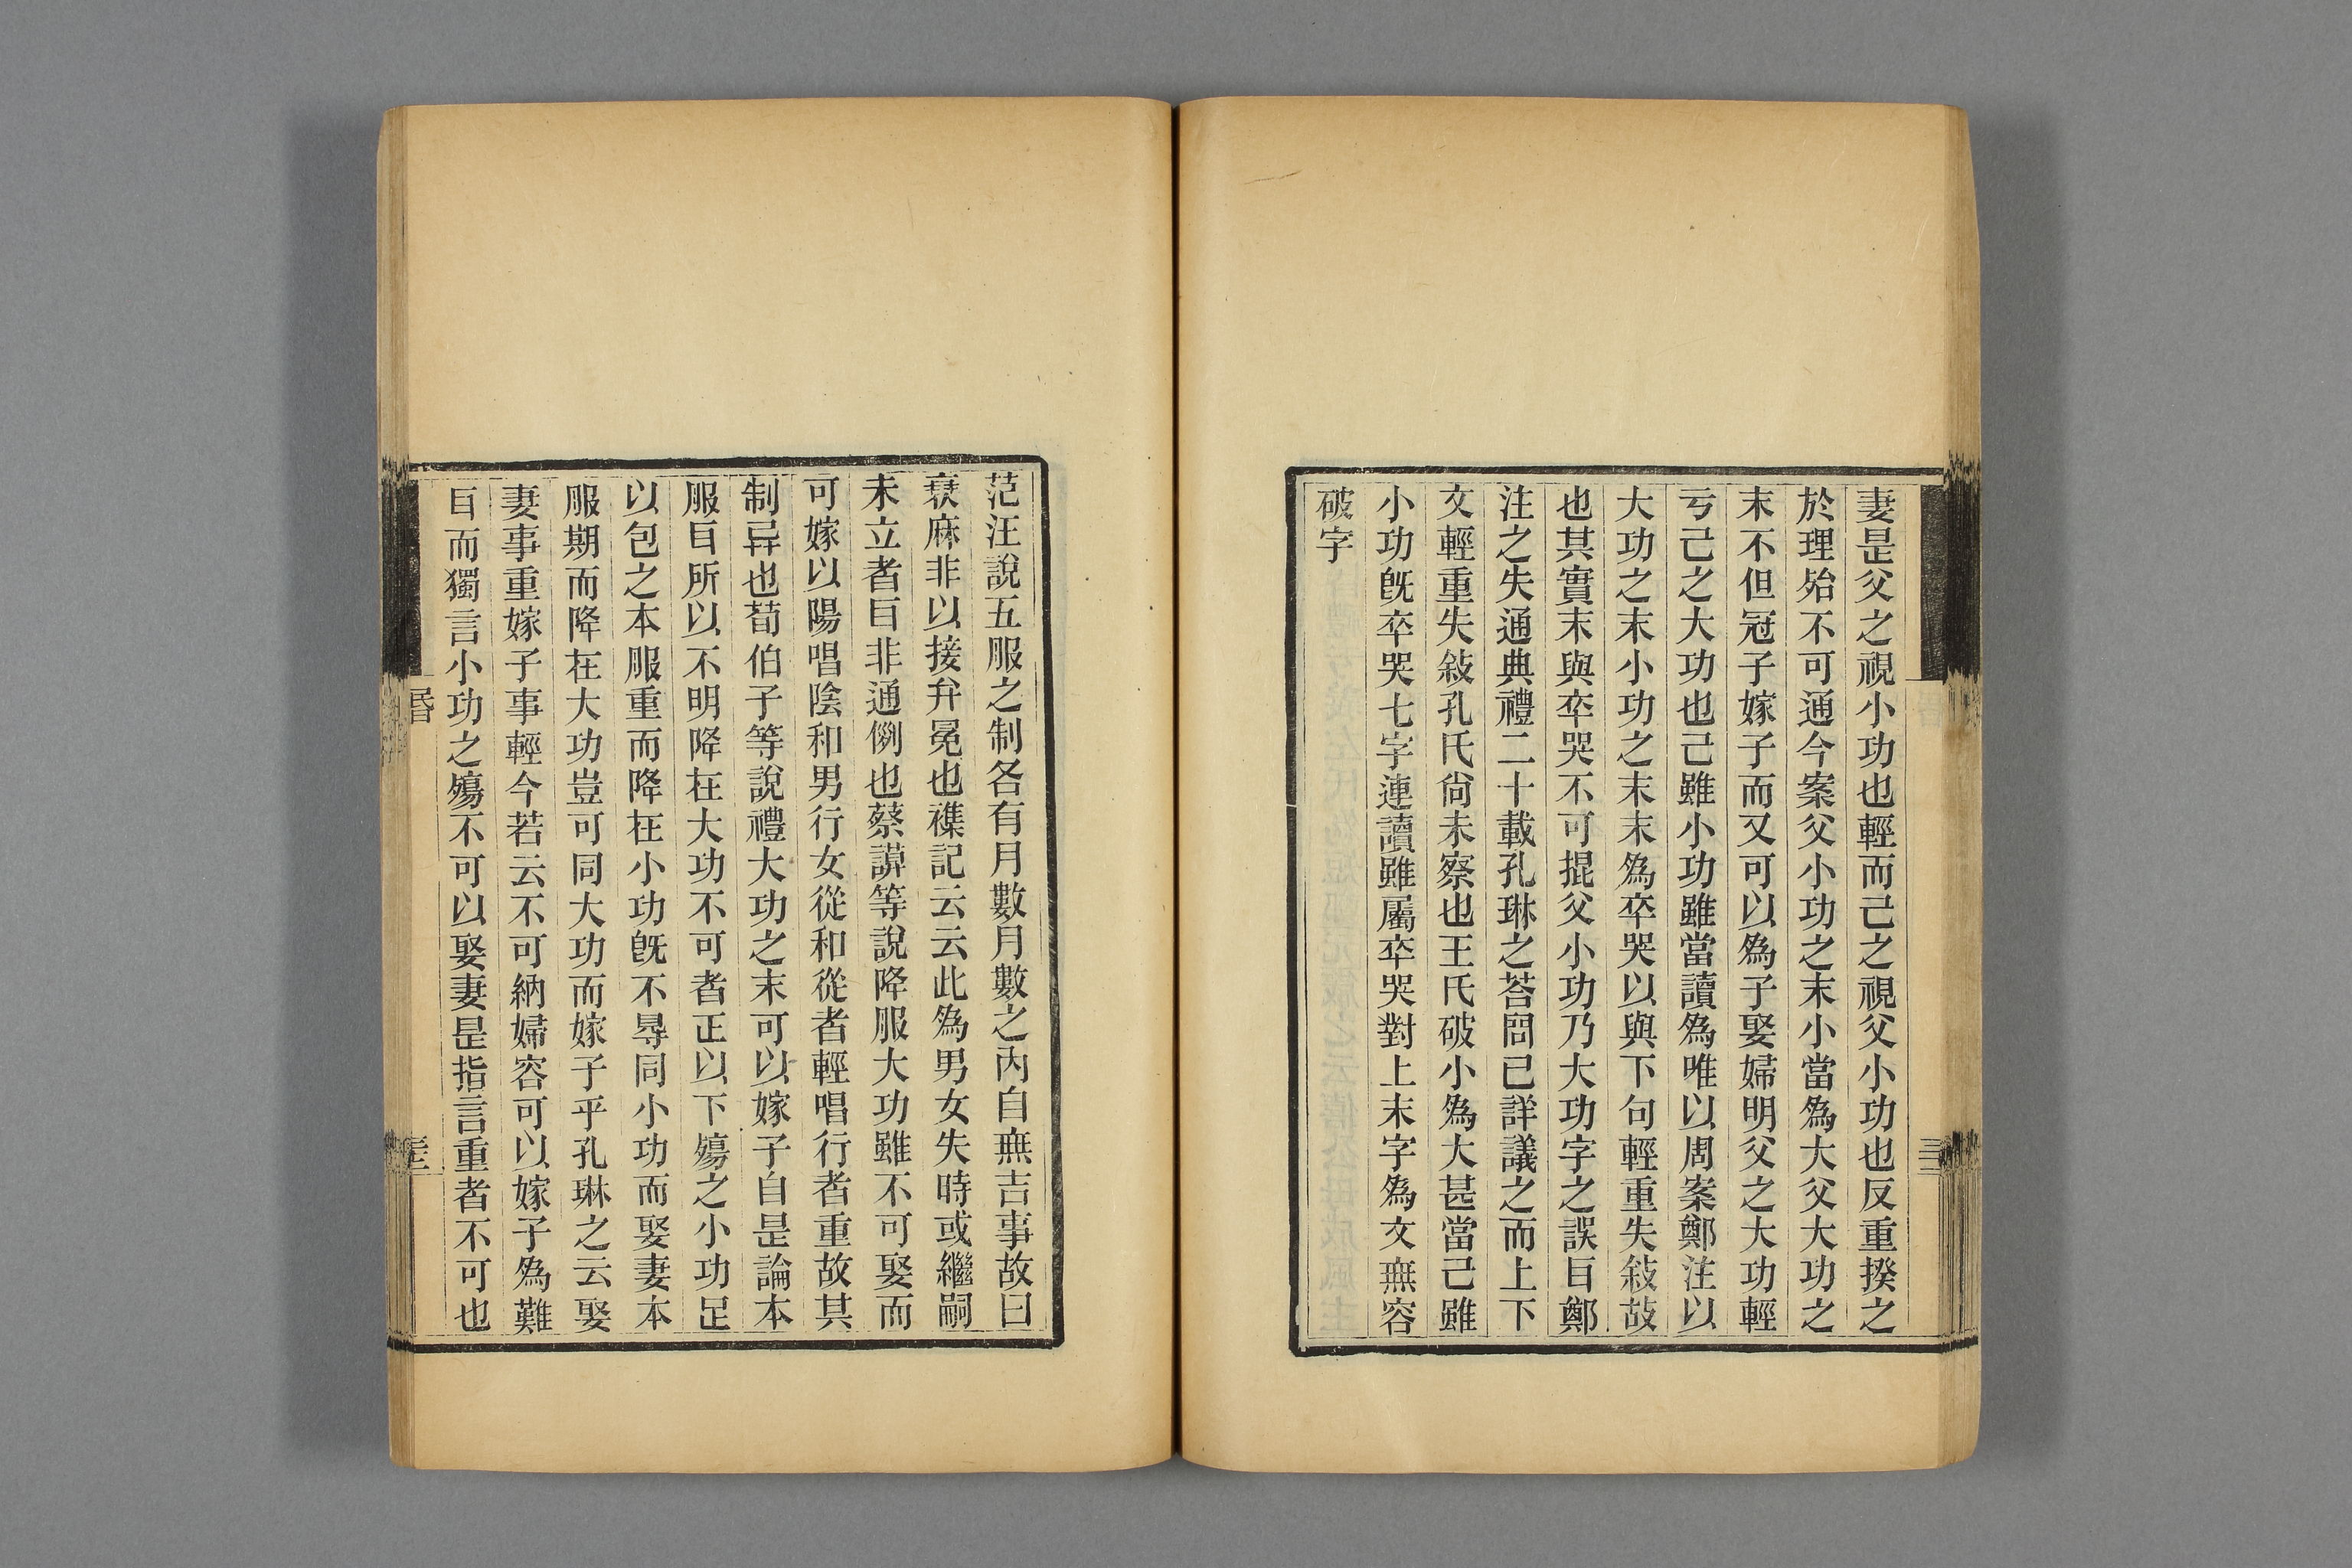 妻是父之視小功也輕而己之視父小功也反重揆之
於理殆不可通今案父小功之末小當爲大父大功之
末不但冠子嫁子而又可以爲子娶婦明父之大功輕
亏己之大功也己雖小功雖當讀爲唯以周案鄭注以
大功之末小功之末末爲卒哭以與下句輕重失敍故
也其實末與卒哭不可掍父小功乃大功字之誤㠯鄭
注之失通典禮二十載孔琳之荅問已詳議之而上下
文輕重失敍孔氏尙未察也王氏破小爲大甚當己雖
小功旣卒哭七字連讀雖屬卒哭對上末字爲文無容
破字
范汪說五服之制各有月數月數之內自無吉事故曰
衰麻非以接弁冕也襍記云云此爲男女失時或繼嗣
未立者㠯非通例也蔡謨等說降服大功雖不可娶而
可嫁以陽唱陰和男行女從和從者輕唱行者重故其
制异也荀伯子等說禮大功之末可以嫁子自是論本
服㠯所以不明降在大功不可者正以下殤之小功足
以包之本服重而降在小功旣不㝵同小功而娶妻本
服期而降在大功豈可同大功而嫁子乎孔琳之云娶
妻事重嫁子事輕今若云不可納婦容可以嫁子爲難
㠯而獨言小功之殤不可以娶妻是指言重者不可也